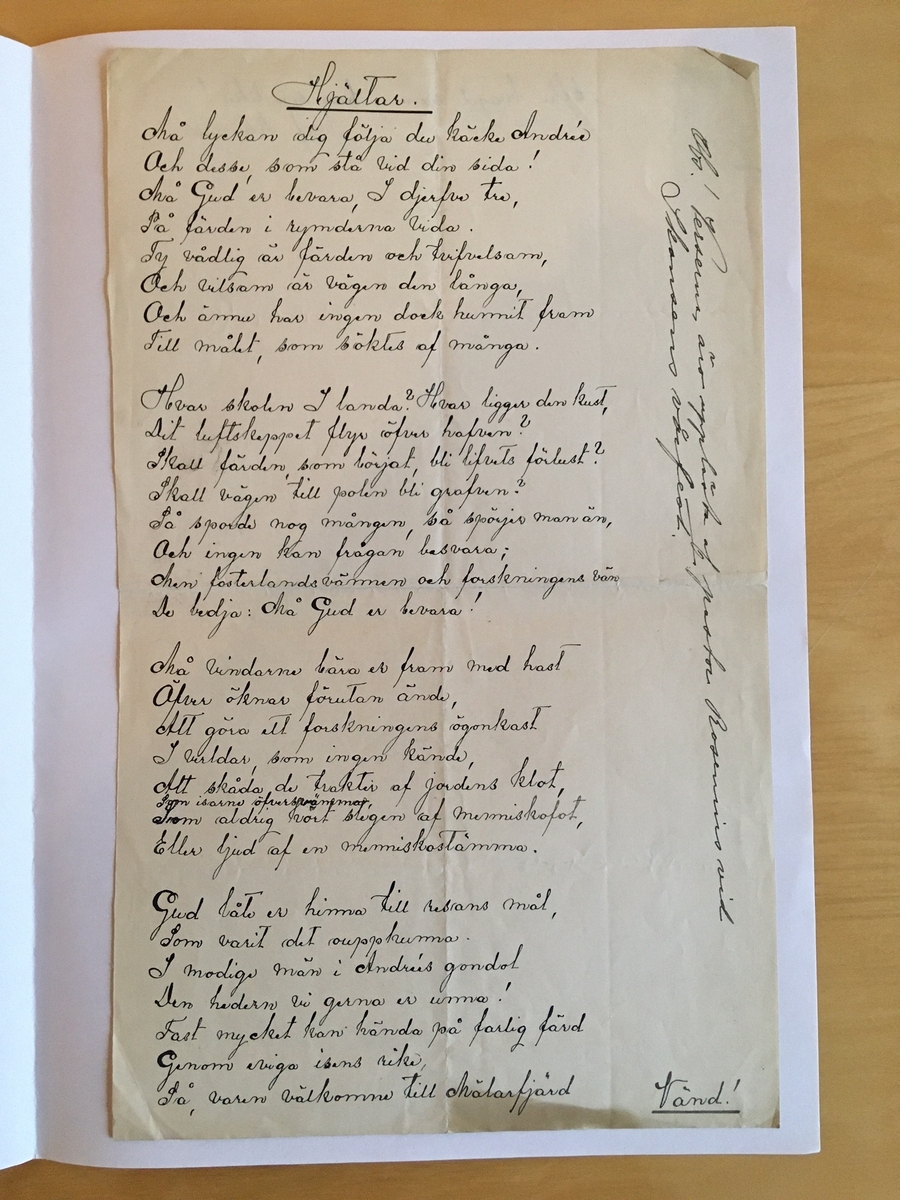 Hjältar.
Må lyckan dig följa du käcke Andrée
Och desse, som stå vid din sida!
Må Gud er bevara, I djerfve tre,
På färden i rymderna vida.
Ty vådlig är färden och tvifvelsam,
Och vilsam är vägen den långa,
Och ännu har ingen dock hunnit fram
Till målet, som söktes af många.
Hvar skolen I landa? Hvar ligger den kust,
Dit luftskeppet flyr öfver hafven?
Skall färden, som börjat, bli lifvets förlust?
Skall vägen till polen bli grafven?
Så sporde nog mången, så spörjer man än,
Och ingen kan frågan besvara;
Men fosterlandsvännen och forskningens vän
De bedja: Må Gud er bevara!
Må vindarne bära er fram med hast
Öfver öknar förutan ände,
Att göra ett forskningens ögonkast
I verldar, som ingen kände,
Att skåda de trakter af jordens klot,
Som isarne öfversvämma,
Som aldrig hört stegen af menniskofot,
Eller ljud af en menniskostämma.
Gud låte er hinna till resans mål,
Som varit det oupphunna.
I modige män i Andrées gondol
Den hedern vi gerna er unna!
Fast mycket kan hända på farlig färd
Genom eviga isens rike,
Så, varen välkomne till Mälarfjärd
Vänd!
Obs.! Verserna äro upplästa af pastor Rosenius vid
Skansens vårfest.